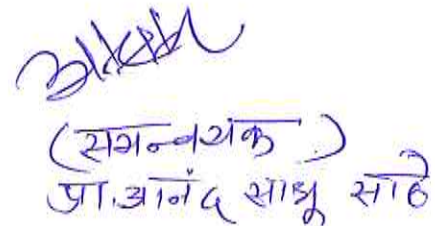 (समन्वयक)
प्रा. आनंद साधू साठे